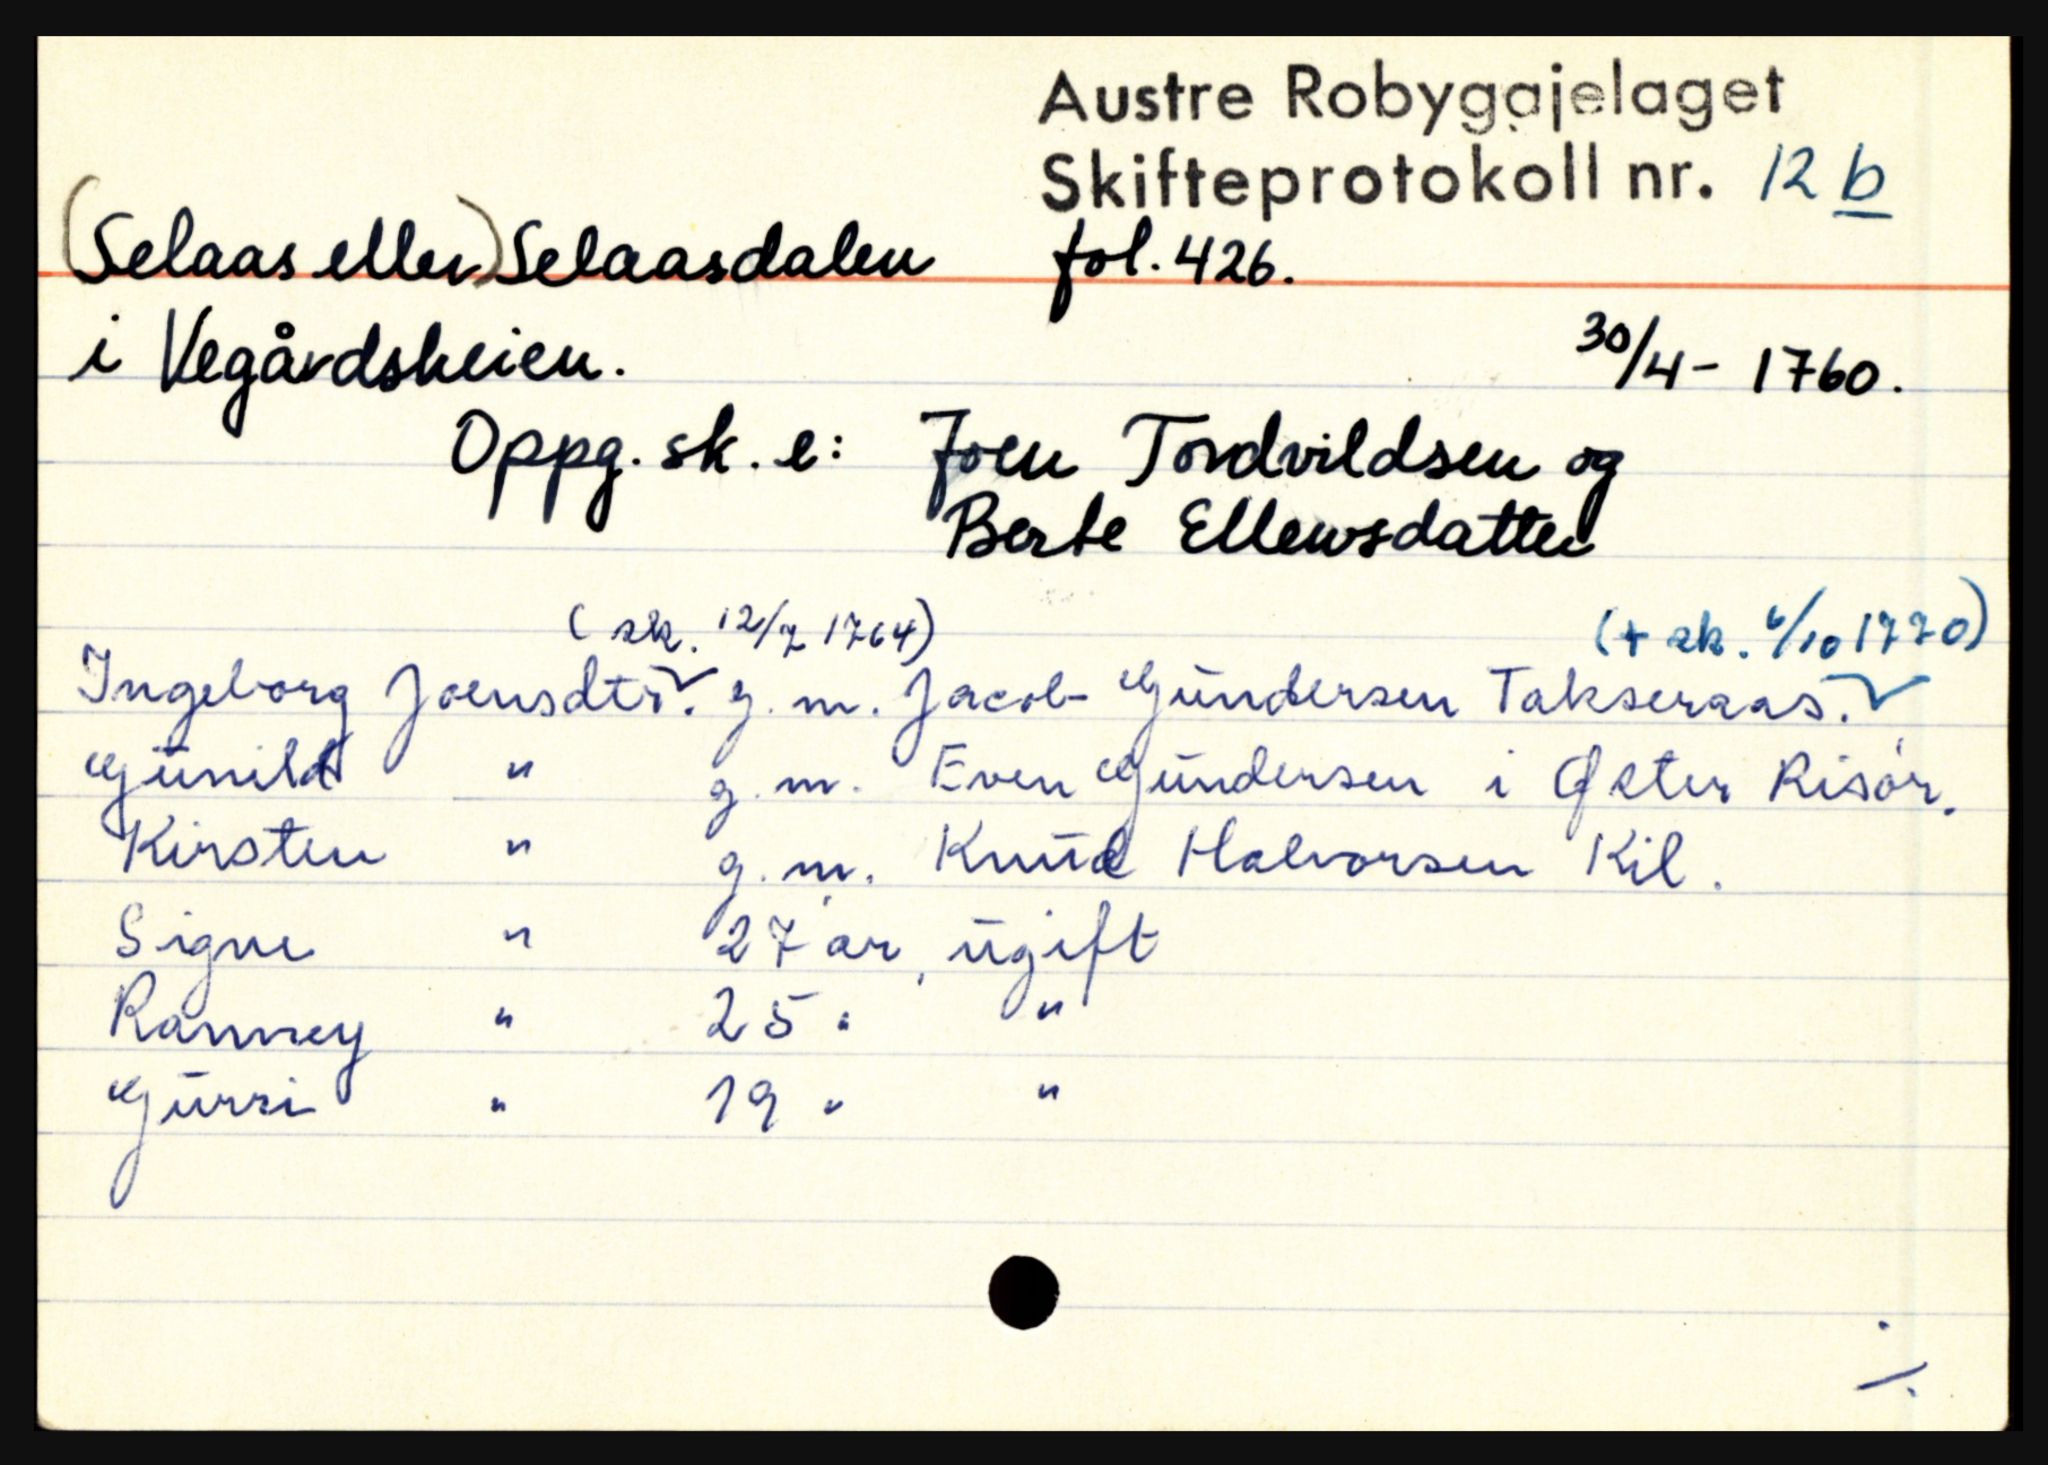 Austre Robygdjelaget
Skifteprotokoll nr. 12 b
(Selaas eller) Selaasdalen fol. 426.
i Vegårdsheien. 30/4 - 1760.
Oppg. sk. e: Joen Tordvildsen og
Berte Ellewsdatter
(sk. 12/7 1764) (+ sk. 6/10 1770)
Ingeborg Joensdtr. ✓ g. m. Jacob Gundersen Takseraas. ✓
Gunild " g. m. Even Gundersen i Øster Risør.
Kirsten " g. m. Knud Halvorsen Kil.
Signe " 27 år, ugift
Ranney " 25 " "
Gurri " 19 " "
./.